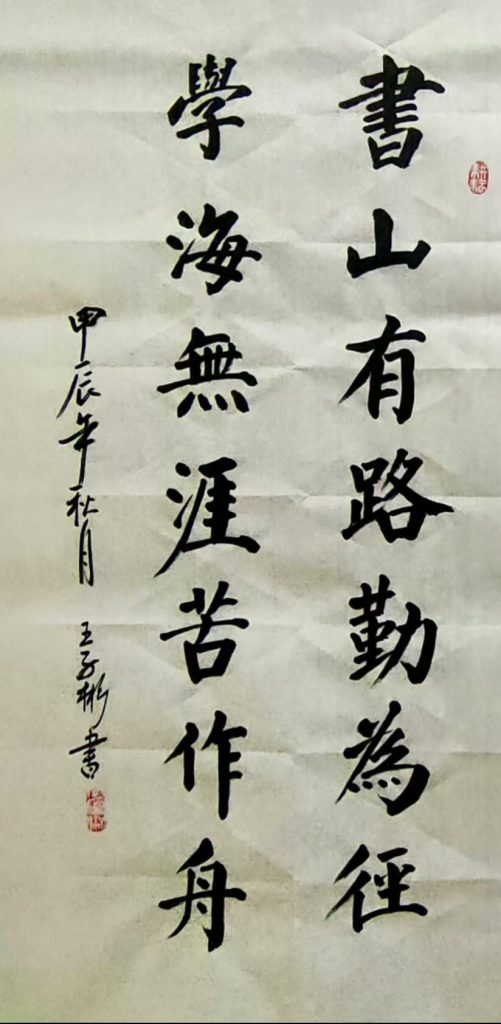 書山有路勤為徑
學海無涯苦作舟
甲辰年秋月 王子彬書